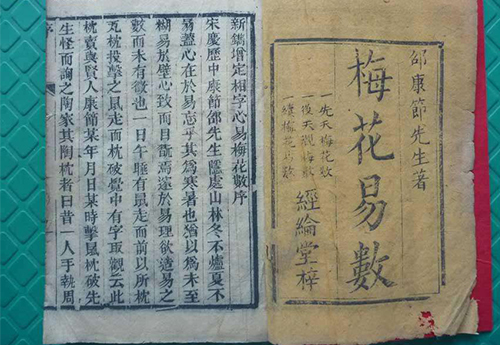 邵康節先生著
梅花易數
一先天梅花數
一後天觀梅數
一續梅花易數
經綸堂梓
新鐫增定相字心易梅花數序
宋慶歷中康節邵先生隱處山林冬不爐夏不
扇蓋心在於易忘乎其爲寒暑也猶以爲未至
糊易於壁心致而目焉邃於易理欲造易之
數而未有徵也一日午睡有鼠走而前以所枕
瓦枕投擊之鼠走而枕破覺中有字取觀云此
枕賣與賢人康節某年月日某時擊鼠枕破先
生怪而詢之陶家其陶枕者曰昔一人手執周
序